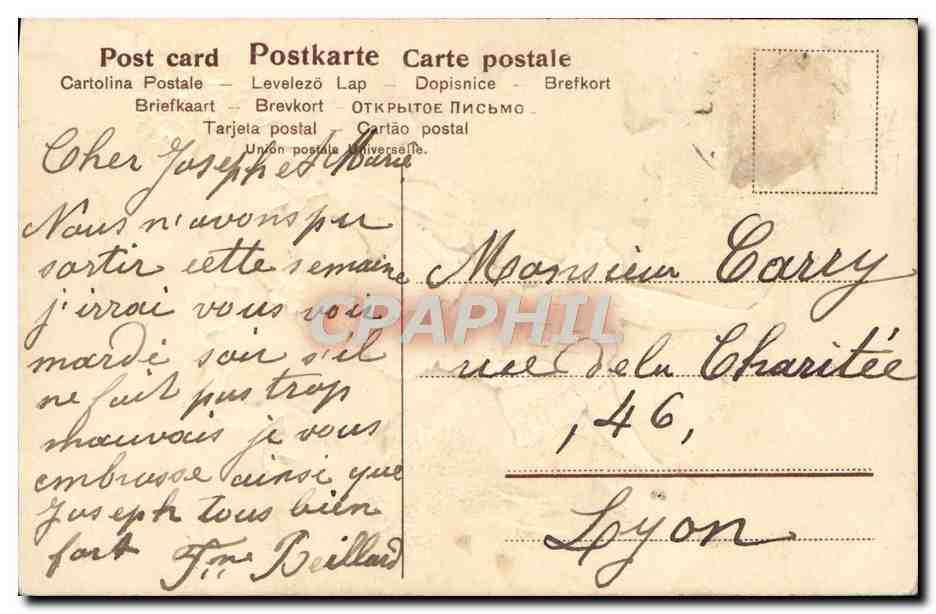 Post card Postkarte Carte postale
Cartolina Postale – Levelező Lap – Dopisnice – Brefkort
Briefkaart – Brevkort – Открытое Письмо –
Tarjeta postal – Cartão postal
Union postale Universelle.
Cher Joseph et Marie
Nous n'avons pu
sortir cette semaine
j'irrai vous voir
mardi soir s'il
ne fait pas trop
mauvais je vous
embrasse ainsi que
Joseph tous bien
fort Fne Beillard
Monsieur Carry
rue de la Charitée
,46,
Lyon
CPAPHIL